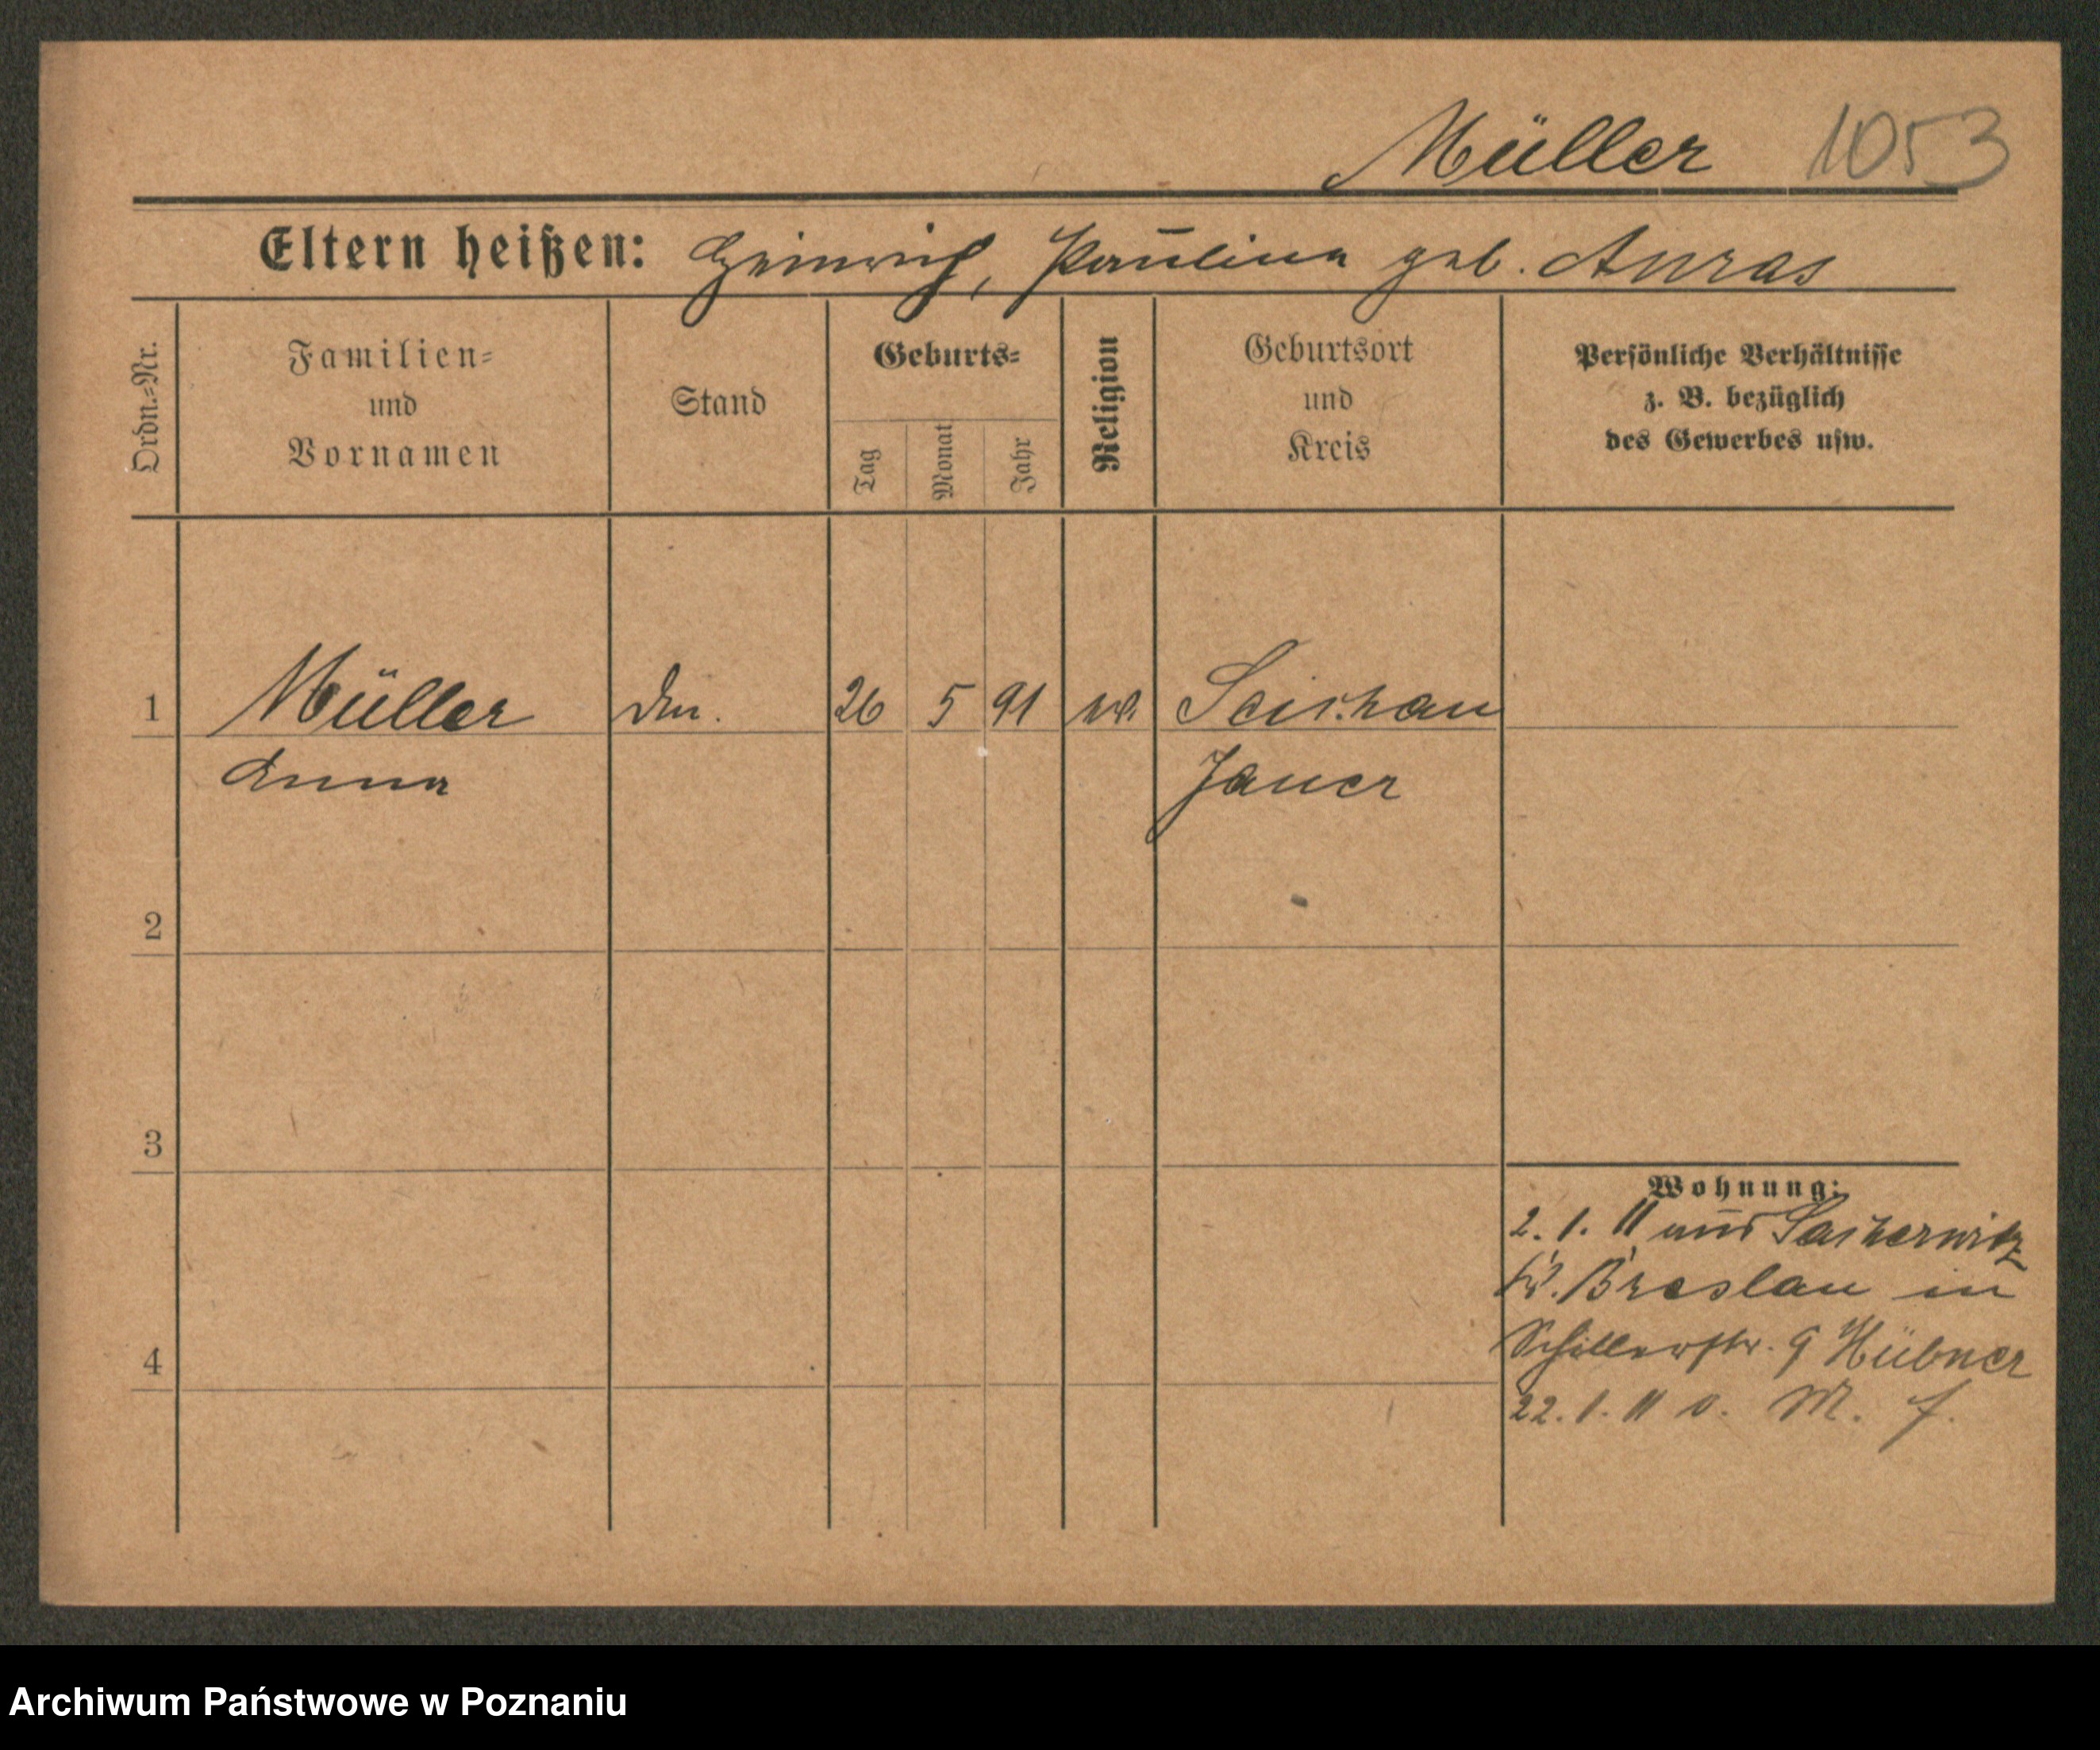 Müller 1053
Eltern heißen: Heinrich, Pauline geb. Anras
Ordn.=Nr.
Familien=
und
Vornamen
Stand
Geburts=
Tag
Monat
Jahr
Religion
Geburtsort
und
Kreis
Persönliche Verhältnisse
z. B. bezüglich
des Gewerbes usw.
1 Müller 26 5 91
Anna Jauer
2
3
4
Wohnung:
2. 1. 11 aus
Kr. Breslau in
Schillerstr. 9 Hübner
22. 1. 11 v. M. f.
Archiwum Państwowe w Poznaniu